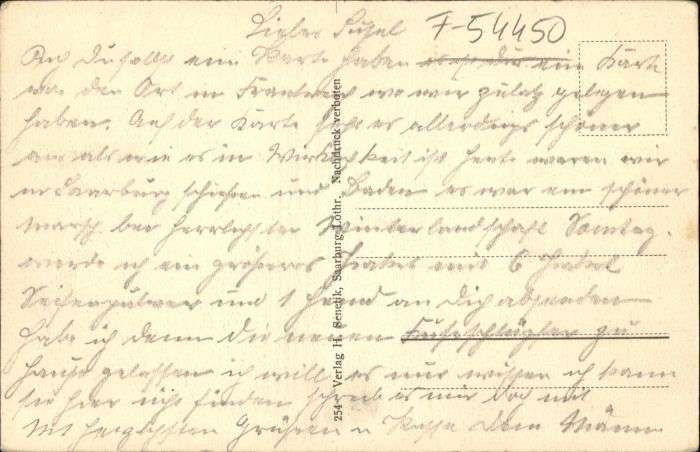 Liebes Susel F-54450
Auch Du sollst eine Karte haben es ist dies eine Karte
von der Ort in Frankreich wo wir zuletz gelegen
haben. Auf der Karte sieht es allerdings schöner
aus als wie es in Wirklichkeit ist heute waren wir
in Saarburg schießen und Baden es war ein schöner
Marsch bei herrlichster Winterlandschaft Sonntag
werde ich ein größeres Paket mit 6 Paket
Seifenpulver und 1 Hemd an Dich absenden
habe ich denn die neuen zu
Hause gelassen ich will es nur wissen ich kann
sie hier nicht finden schreib es mir doch mit
Mit herzlichsten Grüßen u Küsse Dein Männe
254 Verlag H. Senetik, Saarburg-Lothr. Nachdruck verboten